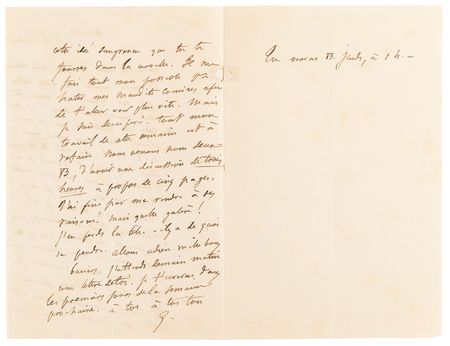 cette idée saugrenue que tu te
fourres dans la caboche. Je me
fais tout mon possible pr
hâter mes maudits comices, afin
de t'aller voir plus vite. Mais
je suis désespéré. tout mon
travail de cette semaine est à
refaire. Nous venons nous deux
B, d'avoir une discussion de trois
heures à propos de cinq pages.
J'ai fini par me rendre à ses
raisons! mais quelle galère!
J'en perds la tête. - il y a de quoi
se pendre. allons adieu mille bons
baisers. j'attends demain matin
une lettre de toi. je t'écrirai dans
les premiers jours de la semaine
prochaine. à toi, à toi ton
G.
Tu verras B. jeudi, à 1 h. -